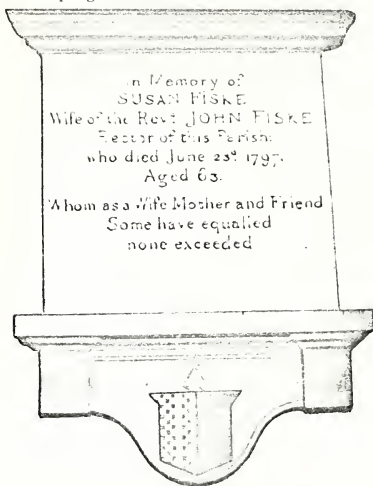 In Memory of
SUSAN FISKE
Wife of the Revd. JOHN FISKE
Rector of this Parish:
who died June 23d. 1797.
Aged 63.
Whom as a Wife Mother and Friend
Some have equalled
none exceeded